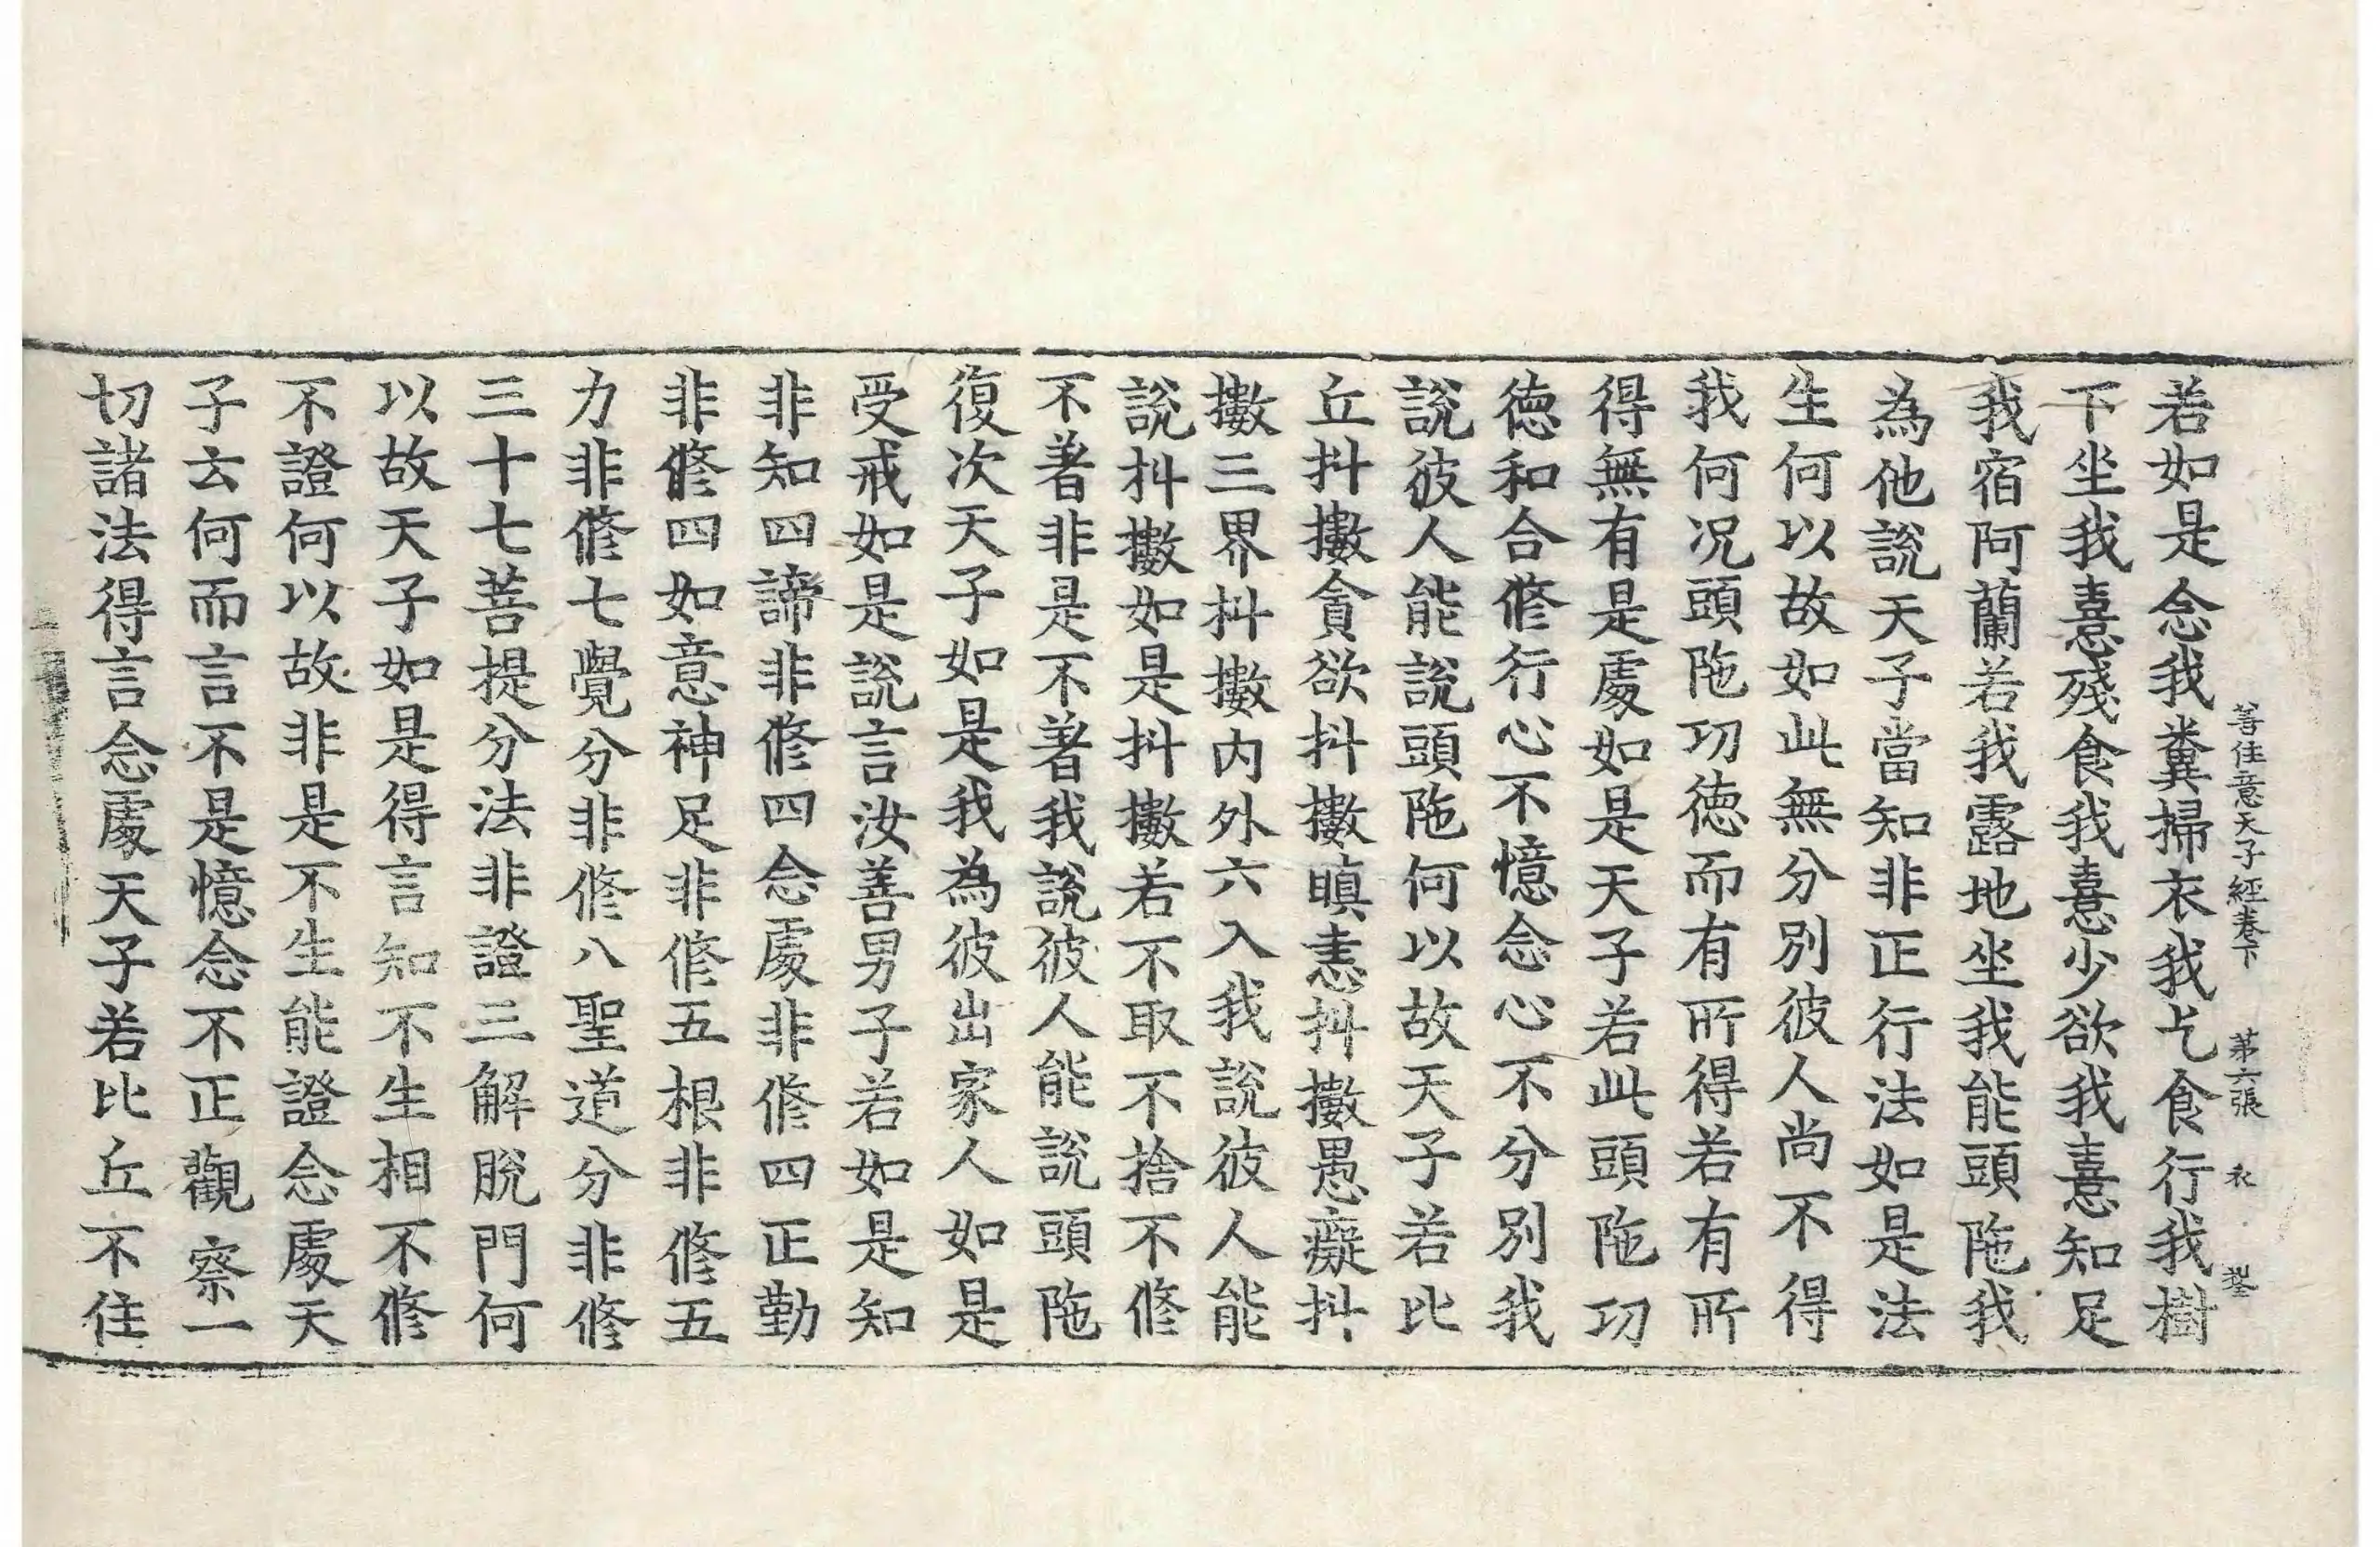 善住意天子經卷下　第六張　衣
若如是念我糞掃衣我乞食行我樹
下坐我憙殘食我憙少欲我憙知足
我宿阿蘭若我露地坐我能頭陁我
為他說天子當知非正行法如是法
生何以故如此無分別彼人尚不得
我何況頭陁功德而有所得若有所
得無有是處如是天子若此頭陁功
德和合修行心不憶念心不分別我
說彼人能說頭陁何以故天子若比
丘抖擻貪欲抖擻瞋恚抖擻愚癡抖
擻三界抖擻內外六入我說彼人能
說抖擻如是抖擻若不取不捨不修
不著非是不著我說彼人能說頭陁
復次天子如是我為彼出家人如是
受戒如是說言汝善男子若如是知
非知四諦非修四念處非修四正勤
非修四如意神足非修五根非修五
力非修七覺分非修八聖道分非修
三十七菩提分法非證三解脫門何
以故天子如是得言知不生相不修
不證何以故非是不生能證念處天
子云何而言不是憶念不正觀察一
切諸法得言念處天子若比丘不住